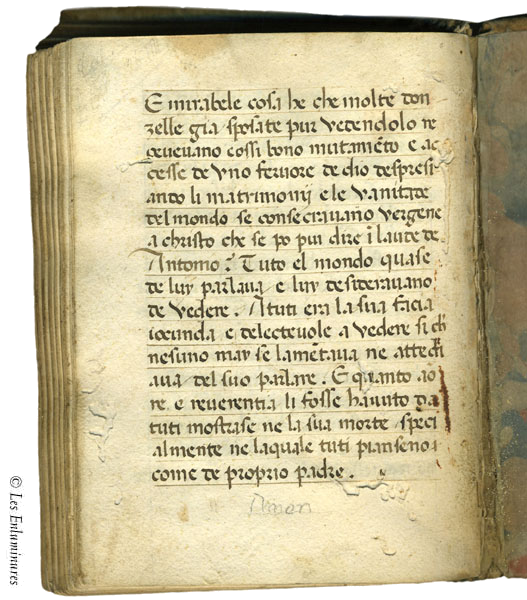 E mirabele cosa he che molte don
zelle gia sposate pur vedendolo re
ceuevano cossi bono mutamẽto e ac
cesse de vno feruore de dio despresi
ando li matrimonij e le vanitade
del mondo se consecrauano vergene
a christo che se po pui dire ĩ laude de
Antonio? Tuto el mondo quase
de luy parlaua e luy desiderauano
de vedere. A tuti era la sua facia
iocunda e delecteuole a vedere si ch
nesuno may se lamẽtaua ne attedi
aua del suo parlare. E quanto ao
re. e reuerentia li fosse hauuto da
tuti mostrase ne la sua morte speci
almente ne laquale tuti pianseno
come de proprio padre.
Amen
© Les Enluminures